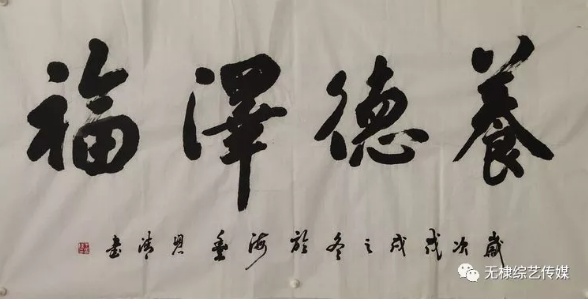 養德澤福
歲次戊戌之冬於海 清書
无棣综艺传媒